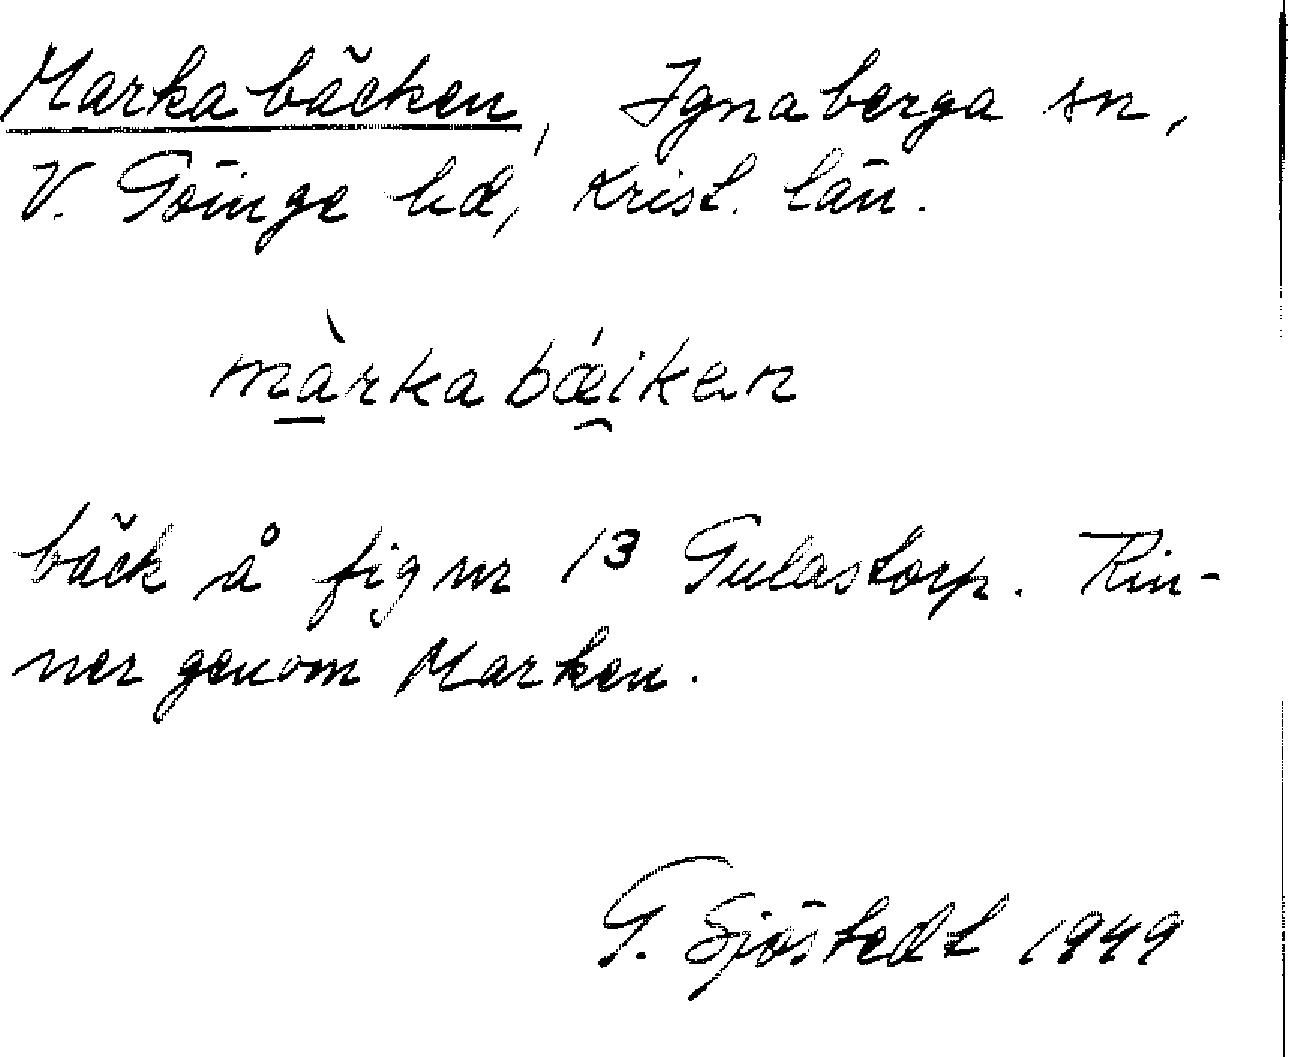 Markabäcken, Ignaberga sn,
V. Göinge hd, Krist. län.
màrkabǽi̯ken
bäck å fig nr 13 Gulastorp. Rin-
ner genom Marken.
G. Sjöstedt 1949